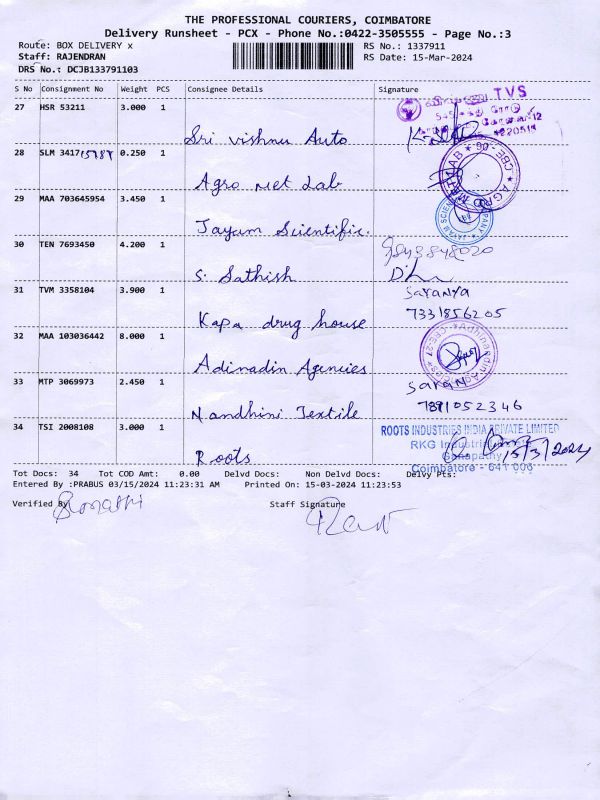 THE PROFESSIONAL COURIERS, COIMBATORE
Delivery Runsheet - PCX - Phone No.:0422-3505555 - Page No.:3
Route: BOX DELIVERY x
RS No.: 1337911
Staff: RAJENDRAN
RS Date: 15-Mar-2024
DRS No.: DCJB133791103
S No Consignment No Weight PCS Consignee Details Signature
27 HSR 53211 3.000 1
TVS
Sri Vishnu Auto
28 SLM 341715787 0.250 1
Agro Net Lab
29 MAA 703645954 3.450 1
Jayam Scientific.
30 TEN 7693450 4.200 1
S. Sathish
31 TVM 3358104 3.900 1
Saranya
7331856205
Kapa drug house
32 MAA 103036442 8.000 1
Adinadin Agencies
33 MTP 3069973 2.450 1
Saran
7891052346
Nandhini Textile
34 TSI 2008108 3.000 1
ROOTS INDUSTRIES INDIA PRIVATE LIMITED
RKG Industrial
Ganapathy
15/3/2024
Roots
Coimbatore - 641 006
Tot Docs: 34 Tot COD Amt: 0.00 Delvd Docs: Non Delvd Docs: Delvy Pts:
Entered By :PRABUS 03/15/2024 11:23:31 AM Printed On: 15-03-2024 11:23:53
Verified By
Staff Signature